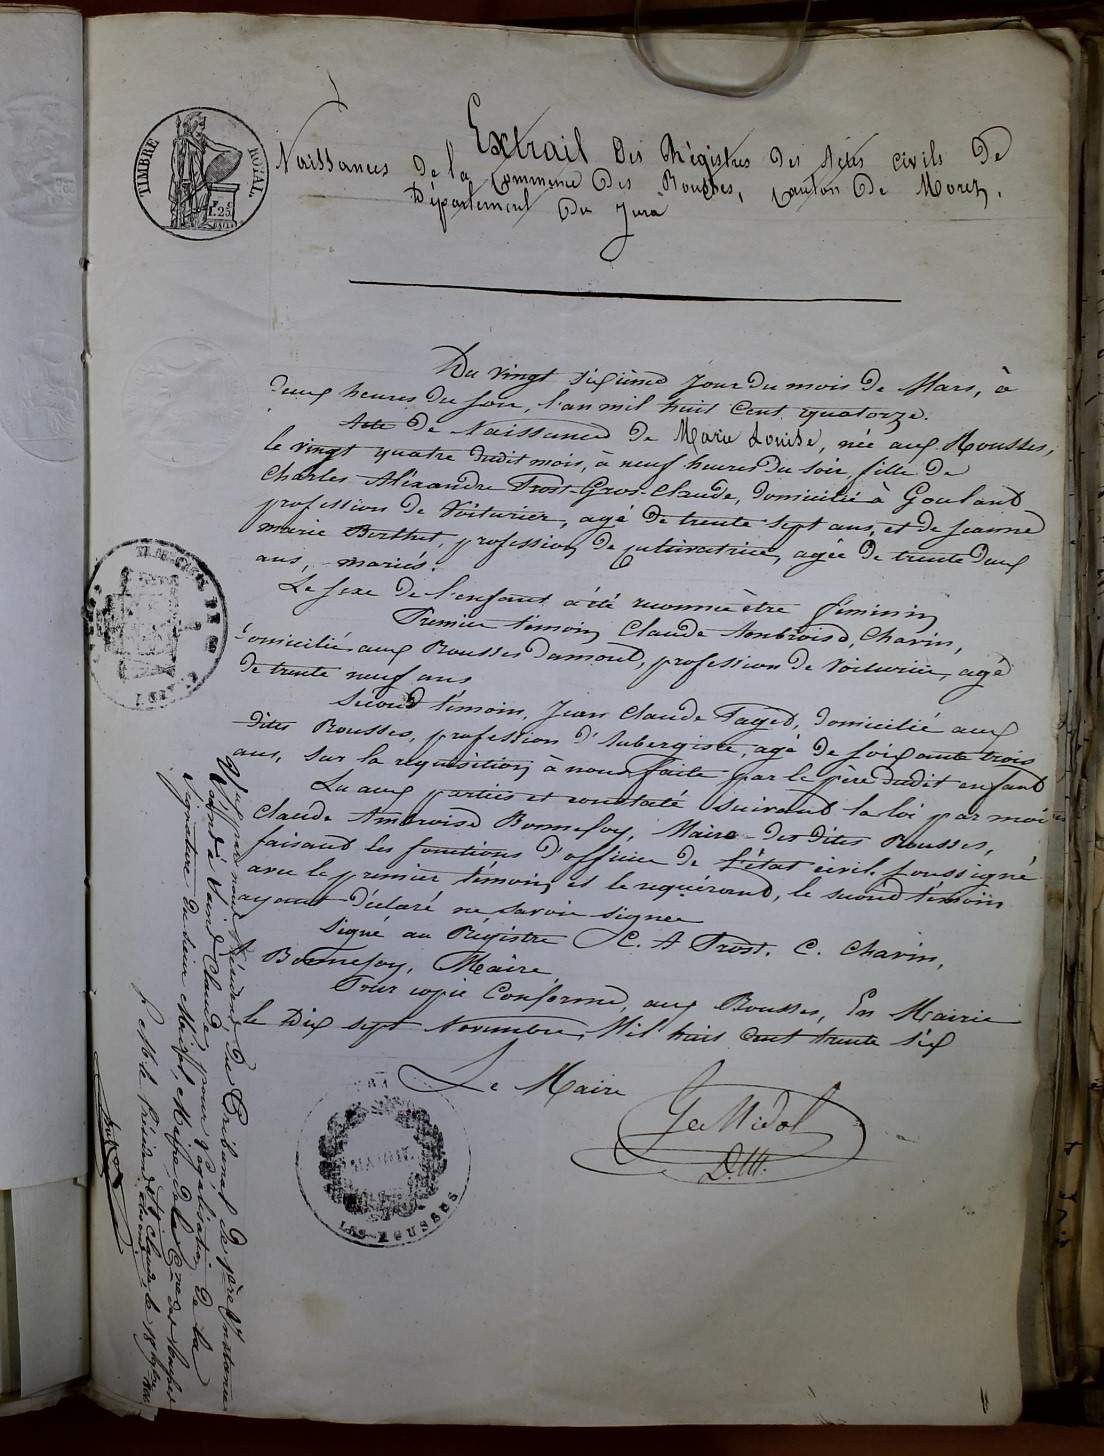 TIMBRE ROYAL
1.25
Extrait des Régistres des Actes civils de
Naissances de la Commune des Rousses, canton de Morez,
Département du Jura
Du vingt sixième Jour du mois de Mars, à
deux heures du soir, l'an mil huit Cent quatorze.
Acte de Naissance de Marie Louise, née aux Rousses,
le vingt quatre dudit mois, à neuf heures du soir, fille de
Charles Aléxandre Prost-Gros-Claude, domicilié à Gouland
profession de Voiturier, agé de trente sept ans, et de Jeanne
marie Berthet, profession de cultivatrice, agée de trente deux
ans, mariés.
Le sexe de l'enfant a été reconnu être féminin
Premier témoin Claude Ambroise, Chavin,
domicilié aux Rousses damont, profession de Voiturier, agé
de trente neuf ans
Second témoin, Jean Claude Paget, domicilié aux
dites Rousses, profession d'Aubergiste, agé de soixante trois
ans, sur la requisition à nous faite par le père dudit enfant
Lu aux parties et constaté suivant la loi par moi
Claude Ambroise Bonnefoy, Maire des dites Rousses,
faisant les fonctions d'officier de l'état civil, soussigné
avec le premier témoin et le requérant, le second témoin
ayant déclaré ne savoir signer
Signé au Régistre C. A Prost. C. Chavin,
Bonnefoy, Maire
Pour copie Conforme, aux Rousses, En Mairie
le Dix sept Novembre, Mil huit cent trente six
Le Maire
Ge Midol
D.M.
LES-ROUSSES
Vu par nous Président du Tribunal de 1ère Instance
séant à Saint Claude, pour légalisation de la
Signature du sieur Midol, Maire de la Cne des Rousses
St Claude le 18 9bre 1836